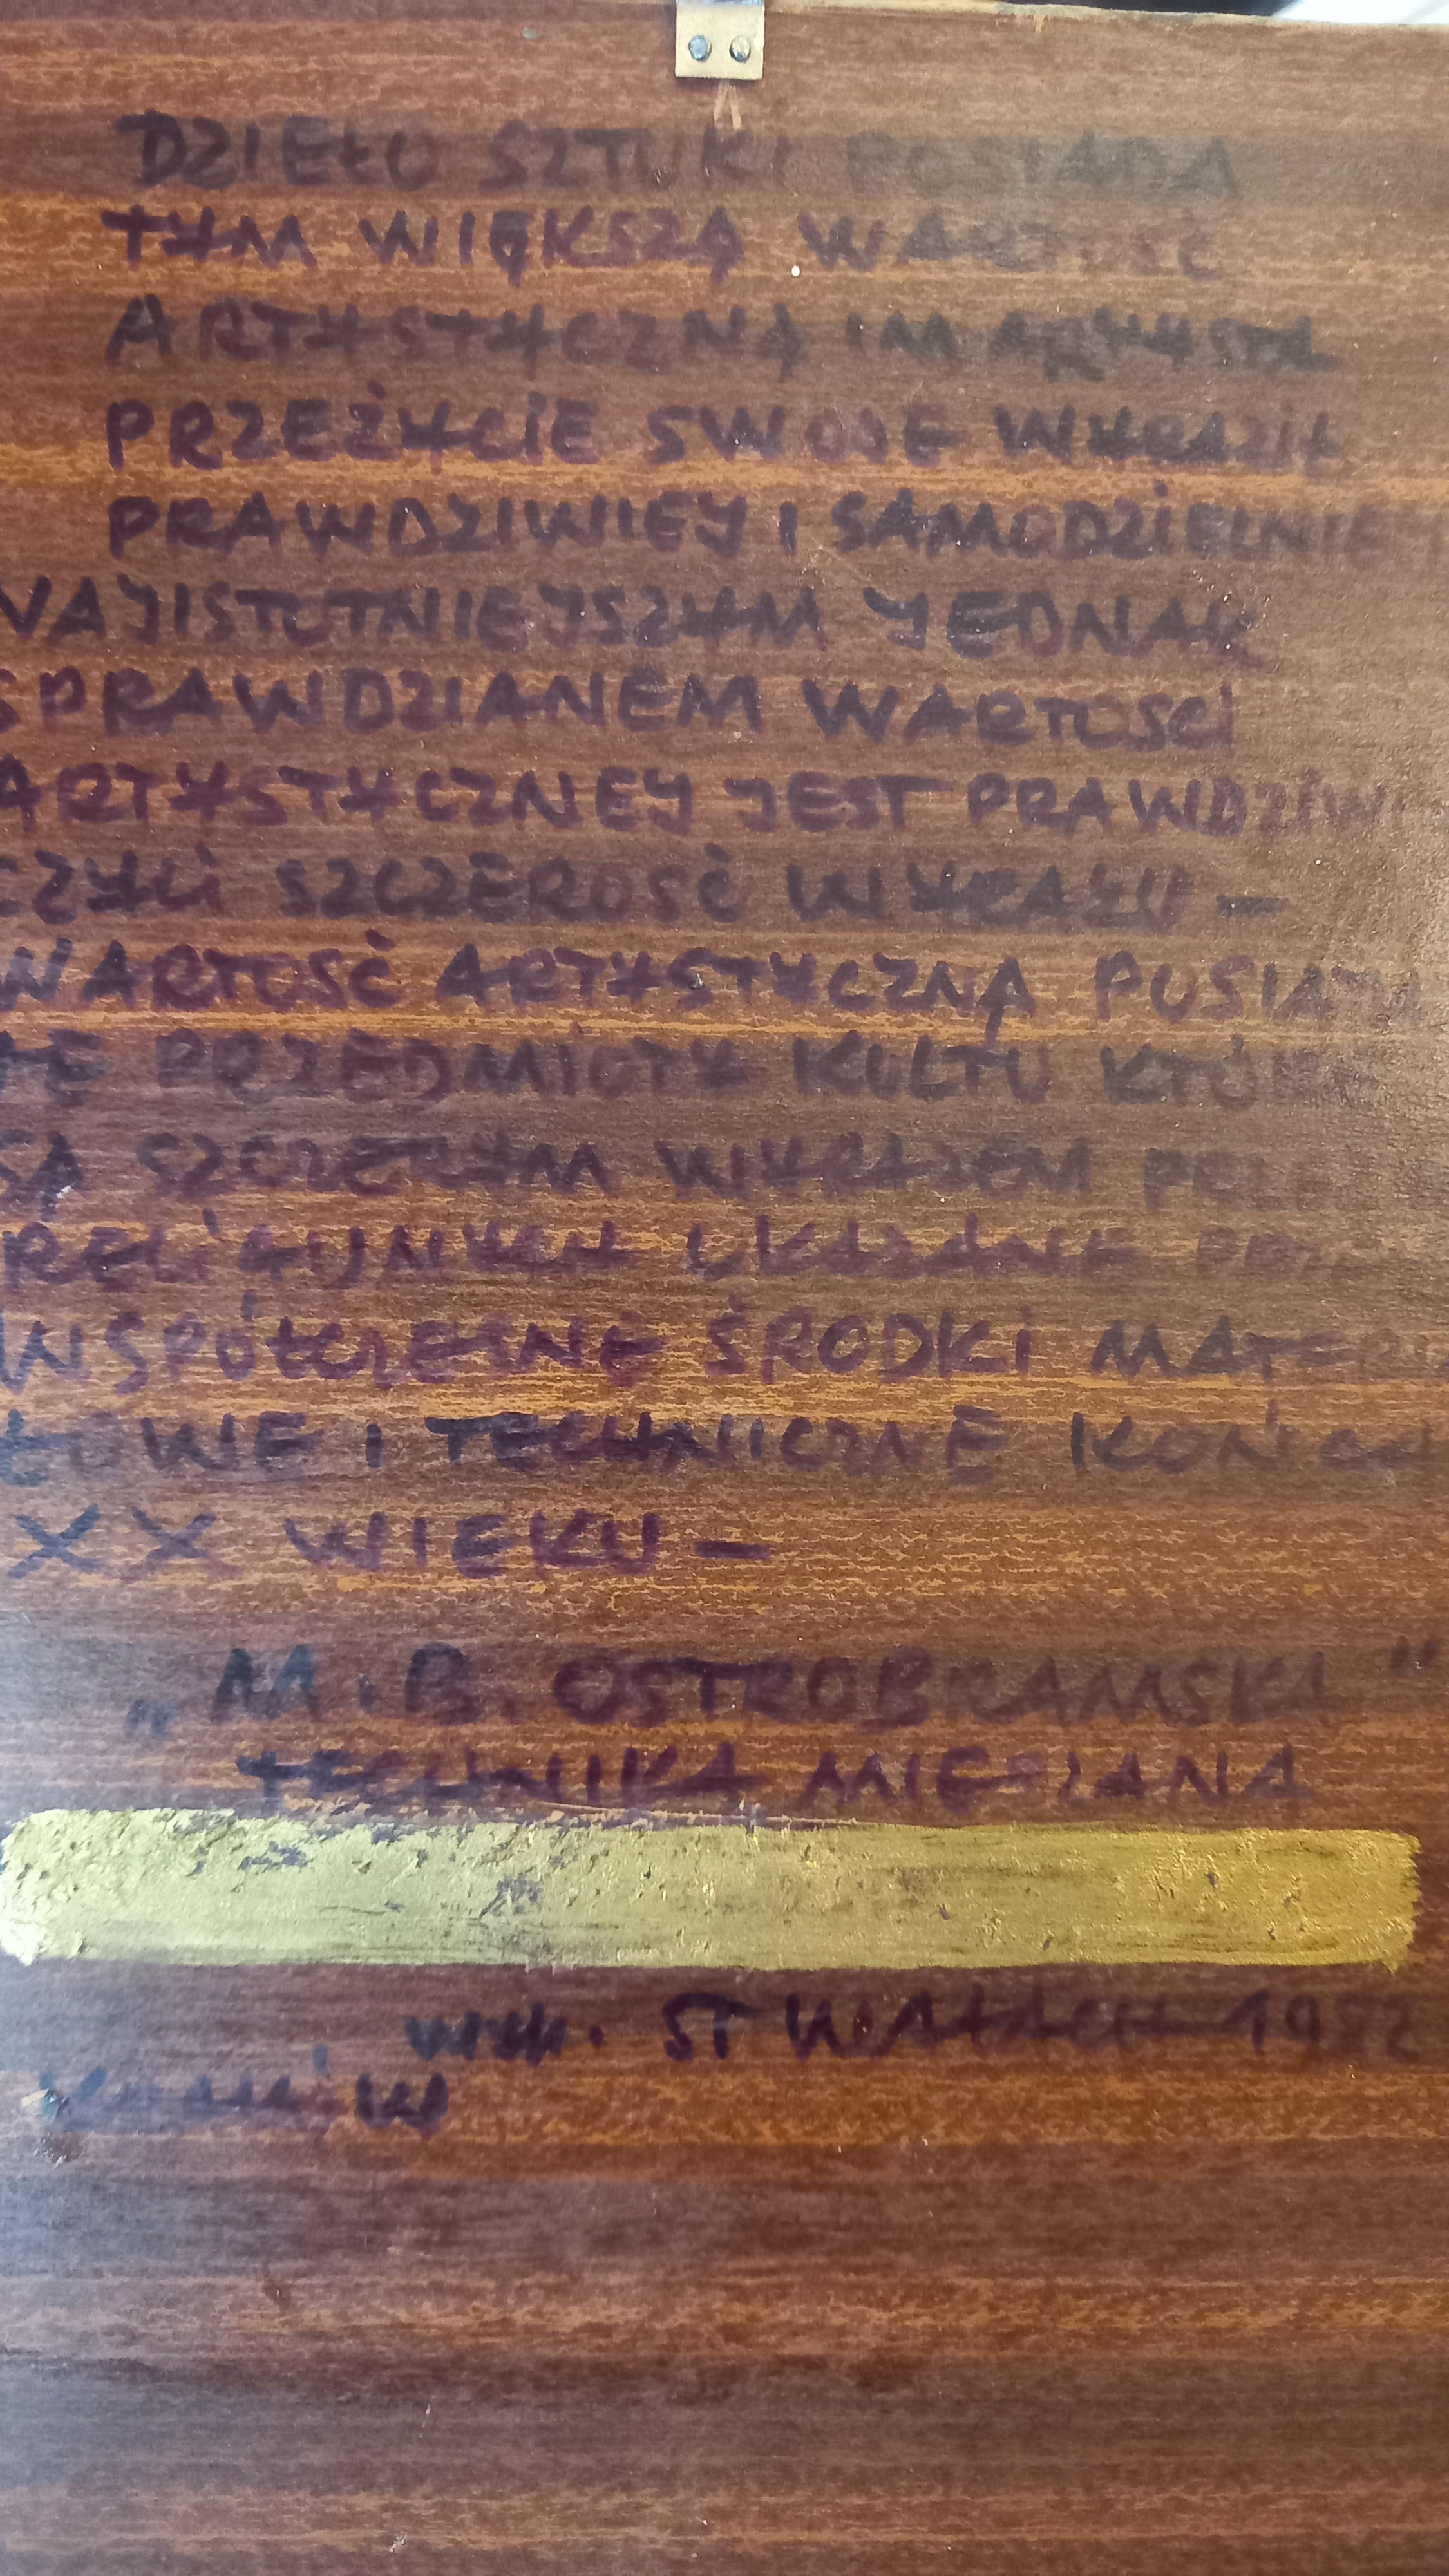 DZIEŁO SZTUKI POSIADA
TYM WIĘKSZĄ WARTOŚĆ
ARTYSTYCZNĄ IM ARTYSTA
PRZEŻYCIE SWOJE WYRAZIŁ
PRAWDZIWIEJ I SAMODZIELNIE
NAJISTOTNIEJSZYM JEDNAK
SPRAWDZIANEM WARTOSCI
ARTYSTYCZNEJ JEST PRAWDZIW
CZYLI SZCZEROSĆ WYRAZU -
WARTOSĆ ARTYSTYCZNĄ POSIADA
TE PRZEDMIOTY KULTU KTÓRE
SĄ SZCZERYM WYRAZEM
RELIGIJNYCH
WSPÓŁCZESNE ŚRODKI MATERIA
ŁOWE I TECHNICZNE KOŃCA
XX WIEKU -
„M.B. OSTROBRAMSKA"
TECHNIKA MIESZANA
WYK. ST WAŁACH 1982